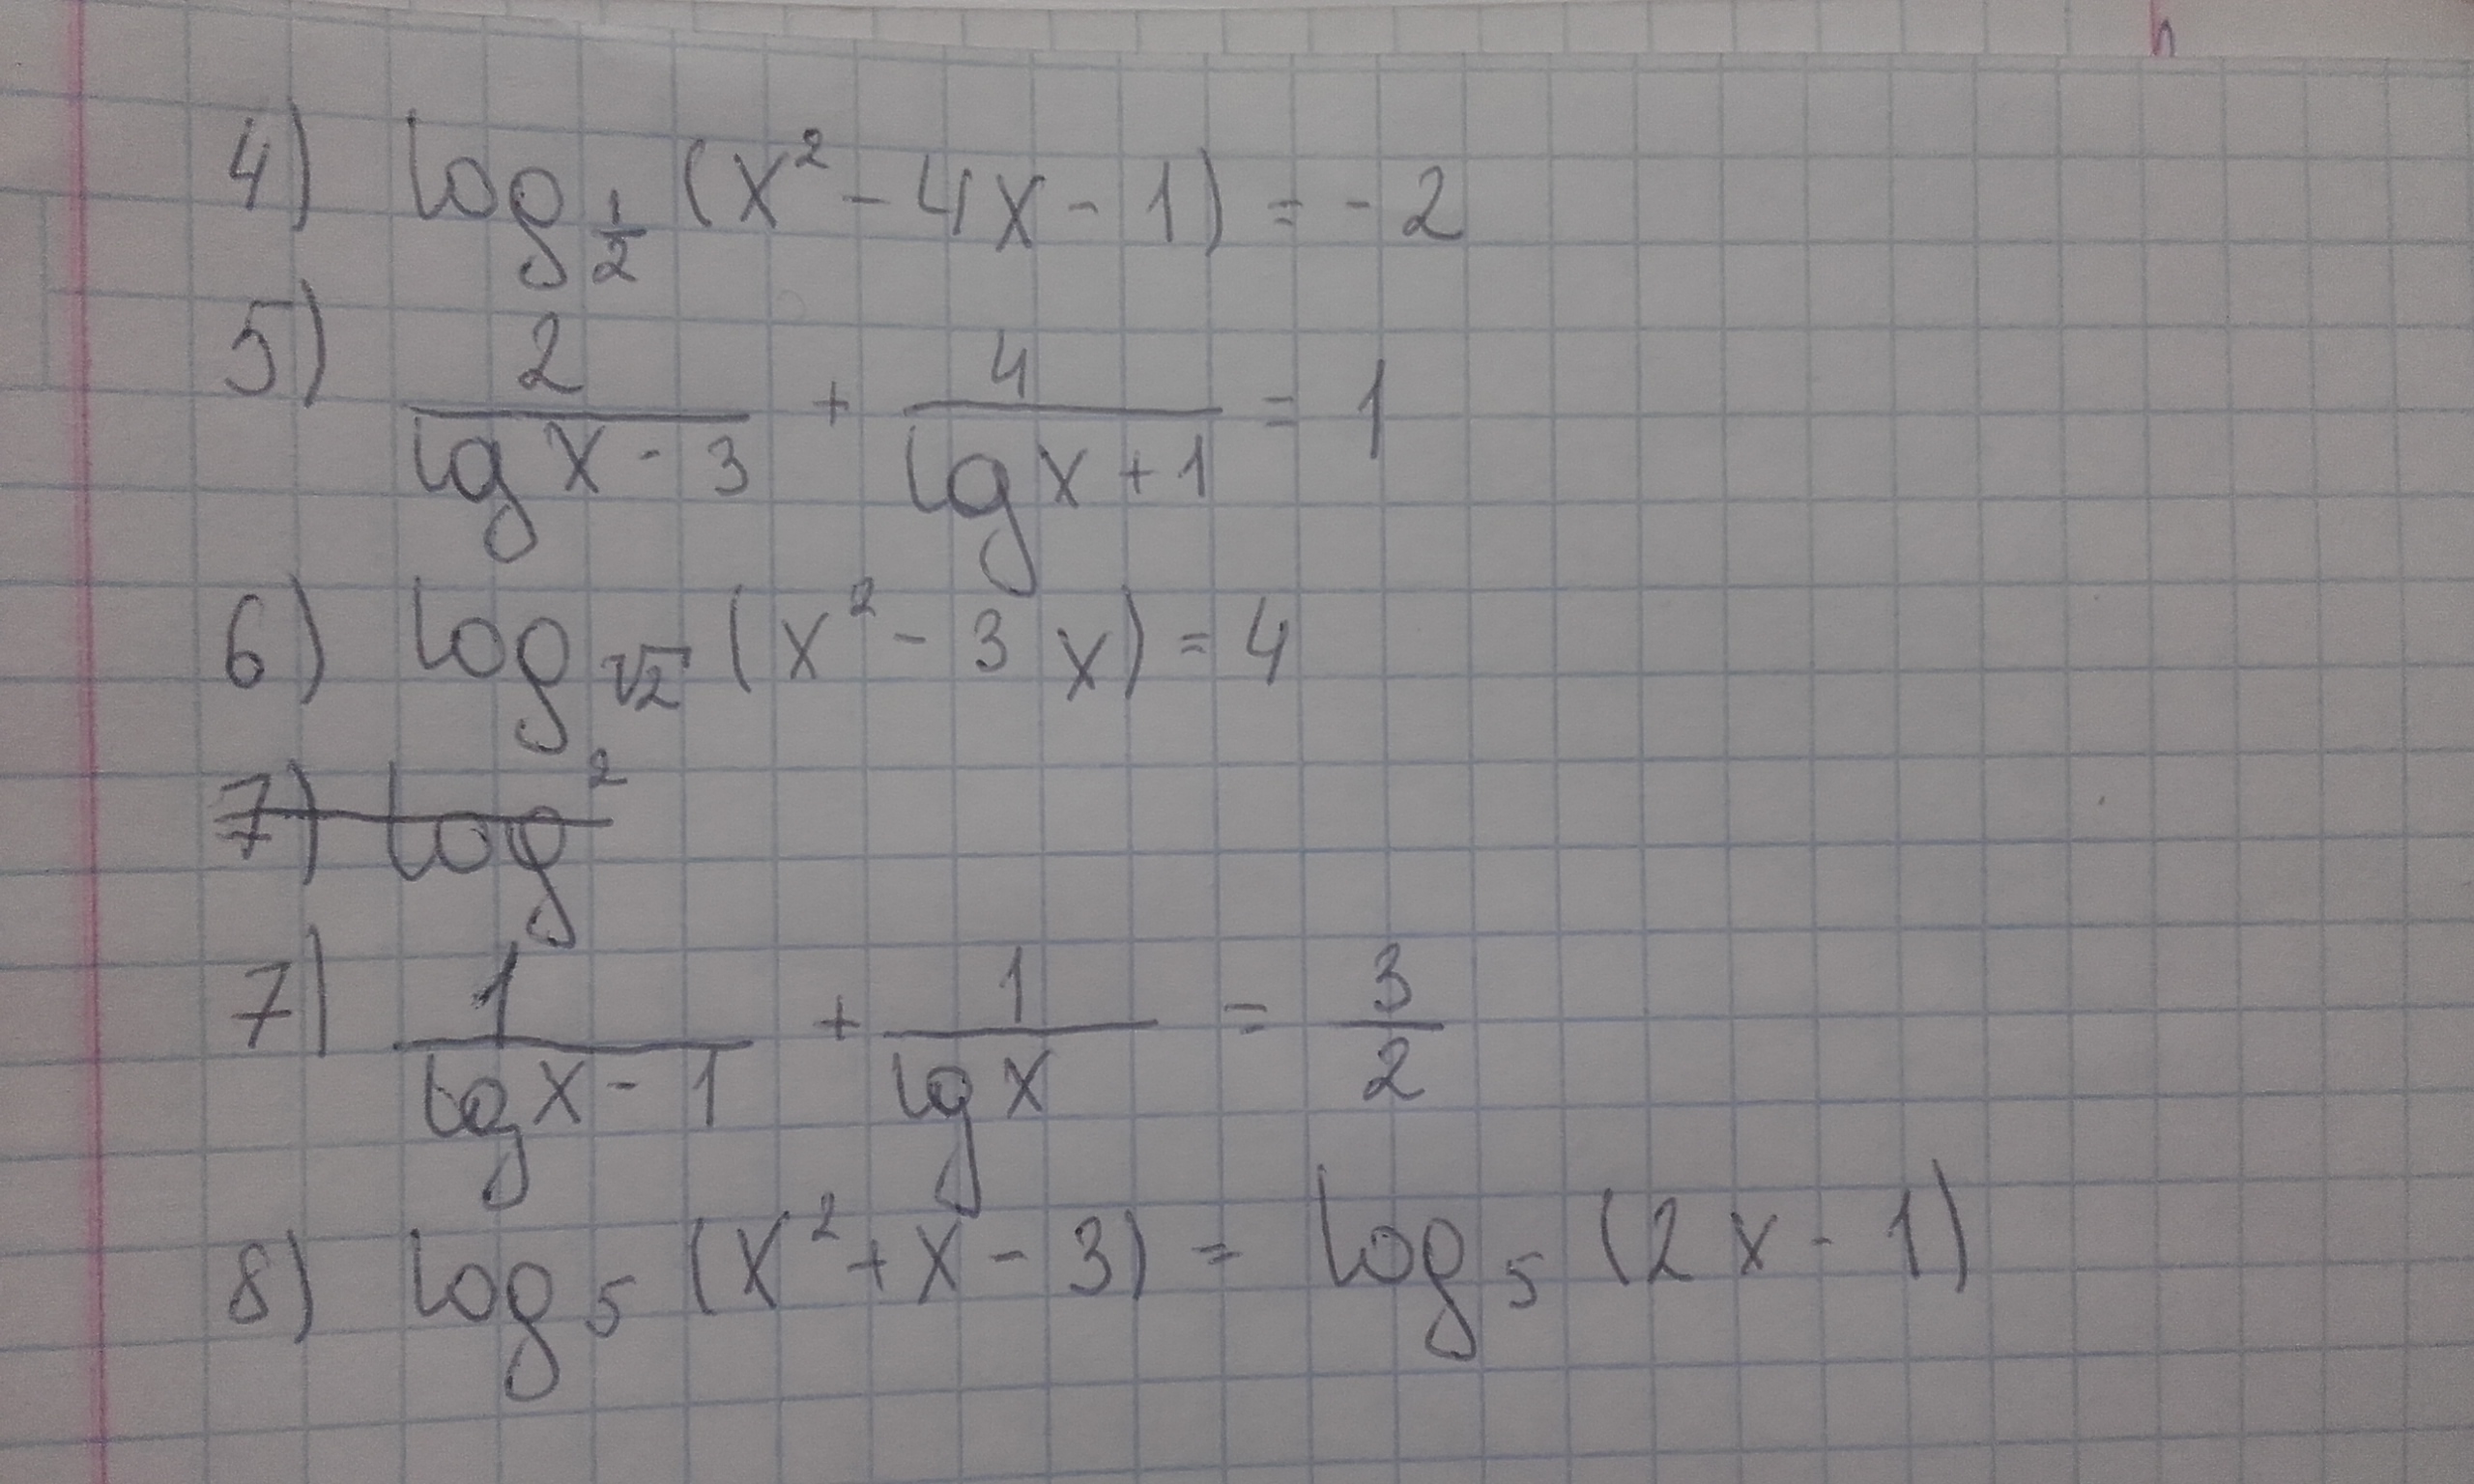 4) log_{1/2} (x² - 4x - 1) = -2
5) 2/(lg x - 3) + 4/(lg x + 1) = 1
6) log_{√2} (x² - 3x) = 4
7) log²
7) 1/(lg x - 1) + 1/(lg x) = 3/2
8) log_5 (x² + x - 3) = log_5 (2x - 1)